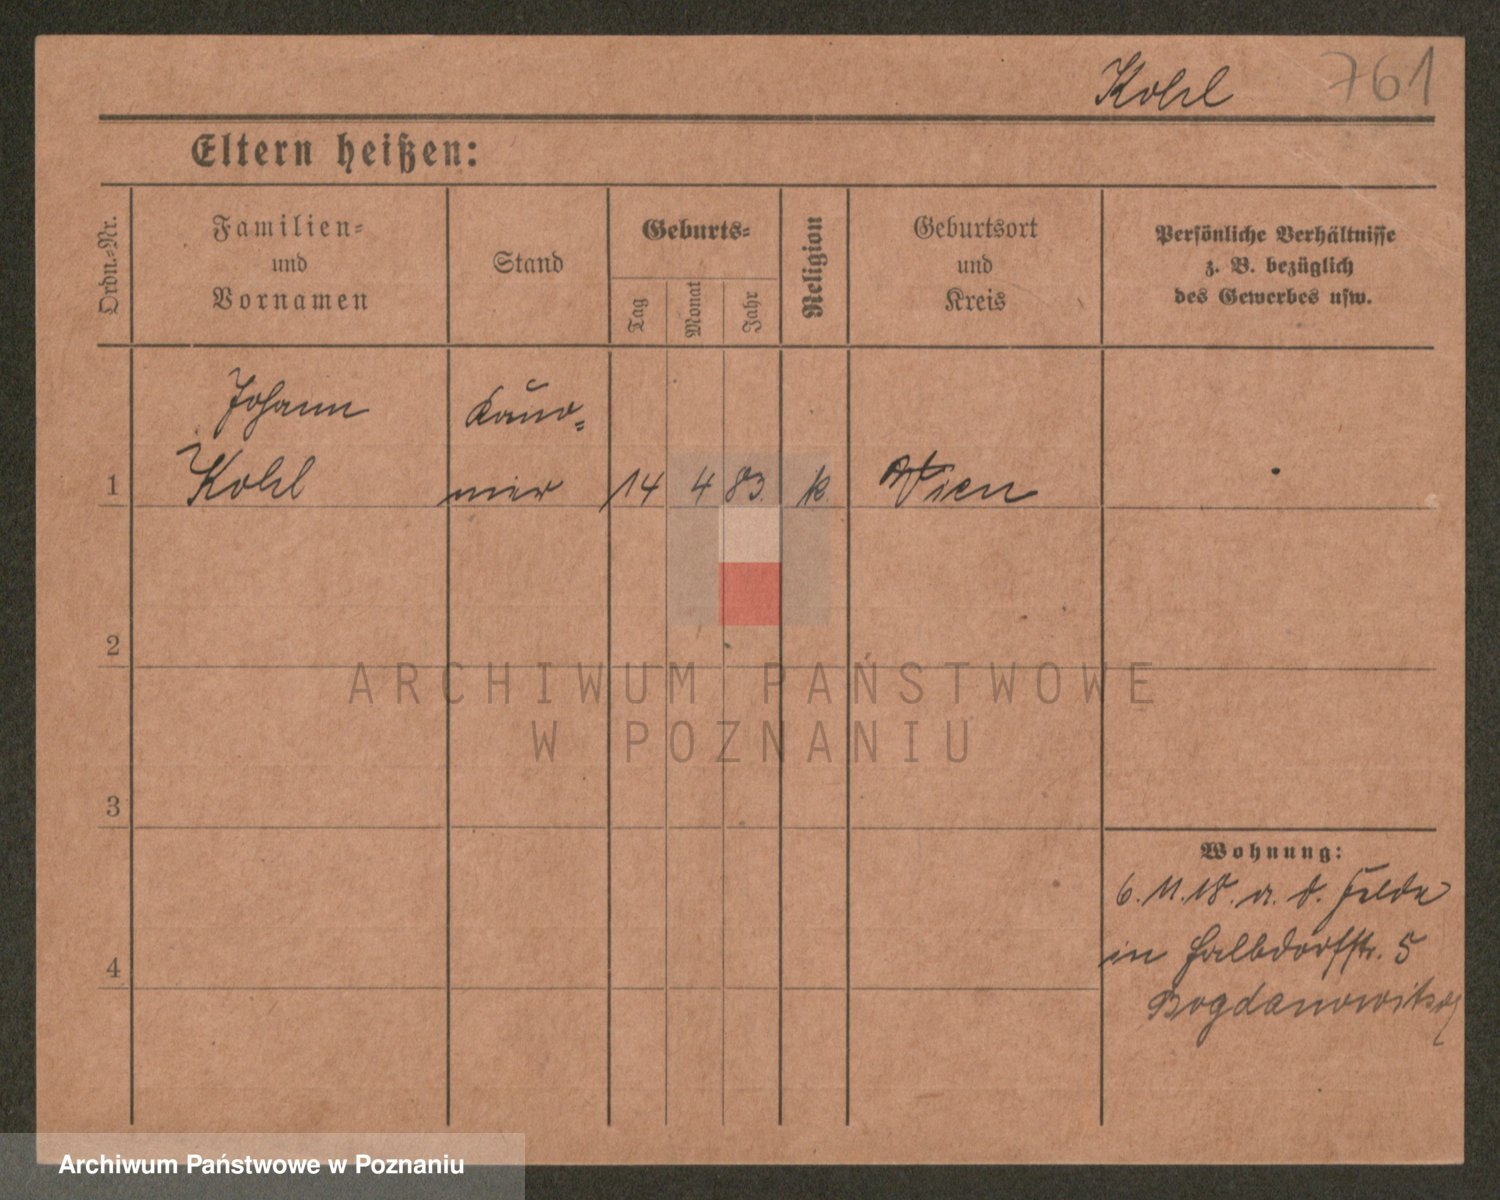 Kohl 761
Eltern heißen:
Ordn.-Nr.
Familien-
und
Vornamen
Stand
Geburts-
Tag
Monat
Jahr
Religion
Geburtsort
und
Kreis
Persönliche Verhältnisse
z. B. bezüglich
des Gewerbes usw.
Johann
Kohl
1 14 4 83. k. Wien
2
3
4
Wohnung:
6. 11. 18. a. d. Felde
in Halbdorfstr. 5
ARCHIWUM PAŃSTWOWE
W POZNANIU
Archiwum Państwowe w Poznaniu